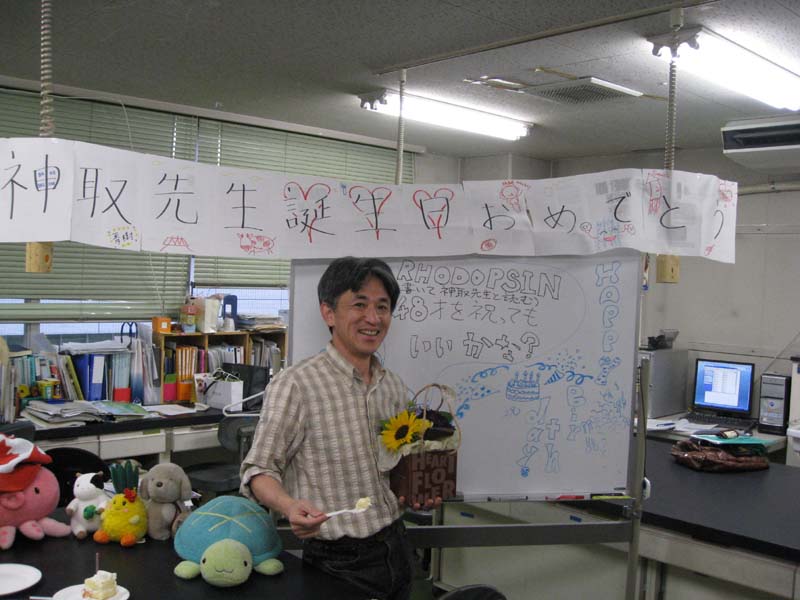 神取先生誕生日おめでとう
秀樹
RHODOPSIN
書いて神取先生と読む
48才を祝っても
いいかな?
HAPPY
Birth
day
HEART
FLO
WER